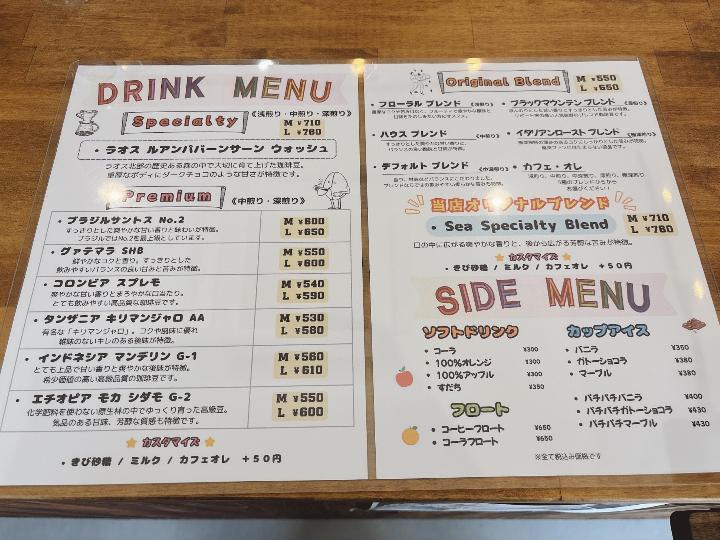 DRINK MENU
Specialty
《浅煎り・中煎り・深煎り》
M ¥710
L ¥760
・ラオス ルアンパバーンサーン ウォッシュ
ラオス北部の歴史ある森の中で大切に育て上げた珈琲豆。
重厚なボディにダークチョコのような甘さが特徴です。
Premium
《中煎り・深煎り》
・ブラジルサントス No.2
すっきりとした爽やかな甘い香りと味わいが特徴。
ブラジルではNo.2を最上級としています。
M ¥600
L ¥650
・グァテマラ SHB
鮮やかなコクと香り。すっきりとした
飲みやすいバランスの良い甘みと苦みが特徴。
M ¥550
L ¥600
・コロンビア スプレモ
爽やかな甘い香りとまろやかな口当たり。
とても飲みやすい高品質な珈琲豆です。
M ¥540
L ¥590
・タンザニア キリマンジャロ AA
有名な「キリマンジャロ」。コクや風味に優れ
雑味のないキレのある後味が特徴。
M ¥530
L ¥580
・インドネシア マンデリン G-1
とても上品で甘い香りと爽やかな後味が特徴。
希少価値の高い高級品質の珈琲豆です。
M ¥560
L ¥610
・エチオピア モカ シダモ G-2
化学肥料を使わない原生林の中でゆっくり育った高級豆。
気品のある甘味、芳醇な質感も特徴です。
M ¥550
L ¥600
カスタマイズ
・きび砂糖 / ミルク / カフェオレ +50円
Original Blend
M ¥550
L ¥650
・フローラル ブレンド 《浅煎り》
・ブラックマウンテン ブレンド
・ハウス ブレンド 《中煎り》
すっきりとした爽やかな甘い香り。
バランスの良い酸味と甘味が特徴。
・イタリアンロースト ブレンド 《極深煎り》
・デフォルト ブレンド
・カフェ・オレ
お選びください！
当店オリジナルブレンド
・Sea Specialty Blend
M ¥710
L ¥760
口の中に広がる爽やかな香りと、後から広がる芳醇な苦みが特徴。
カスタマイズ
・きび砂糖 / ミルク / カフェオレ +50円
SIDE MENU
ソフトドリンク
・コーラ ¥300
・100%オレンジ ¥300
・100%アップル ¥300
・すだち ¥350
フロート
・コーヒーフロート ¥650
・コーラフロート ¥650
カップアイス
・バニラ ¥350
・ガトーショコラ ¥380
・マーブル ¥380
・パチパチバニラ ¥400
・パチパチガトーショコラ ¥430
・パチパチマーブル ¥430
※全て税込み価格です